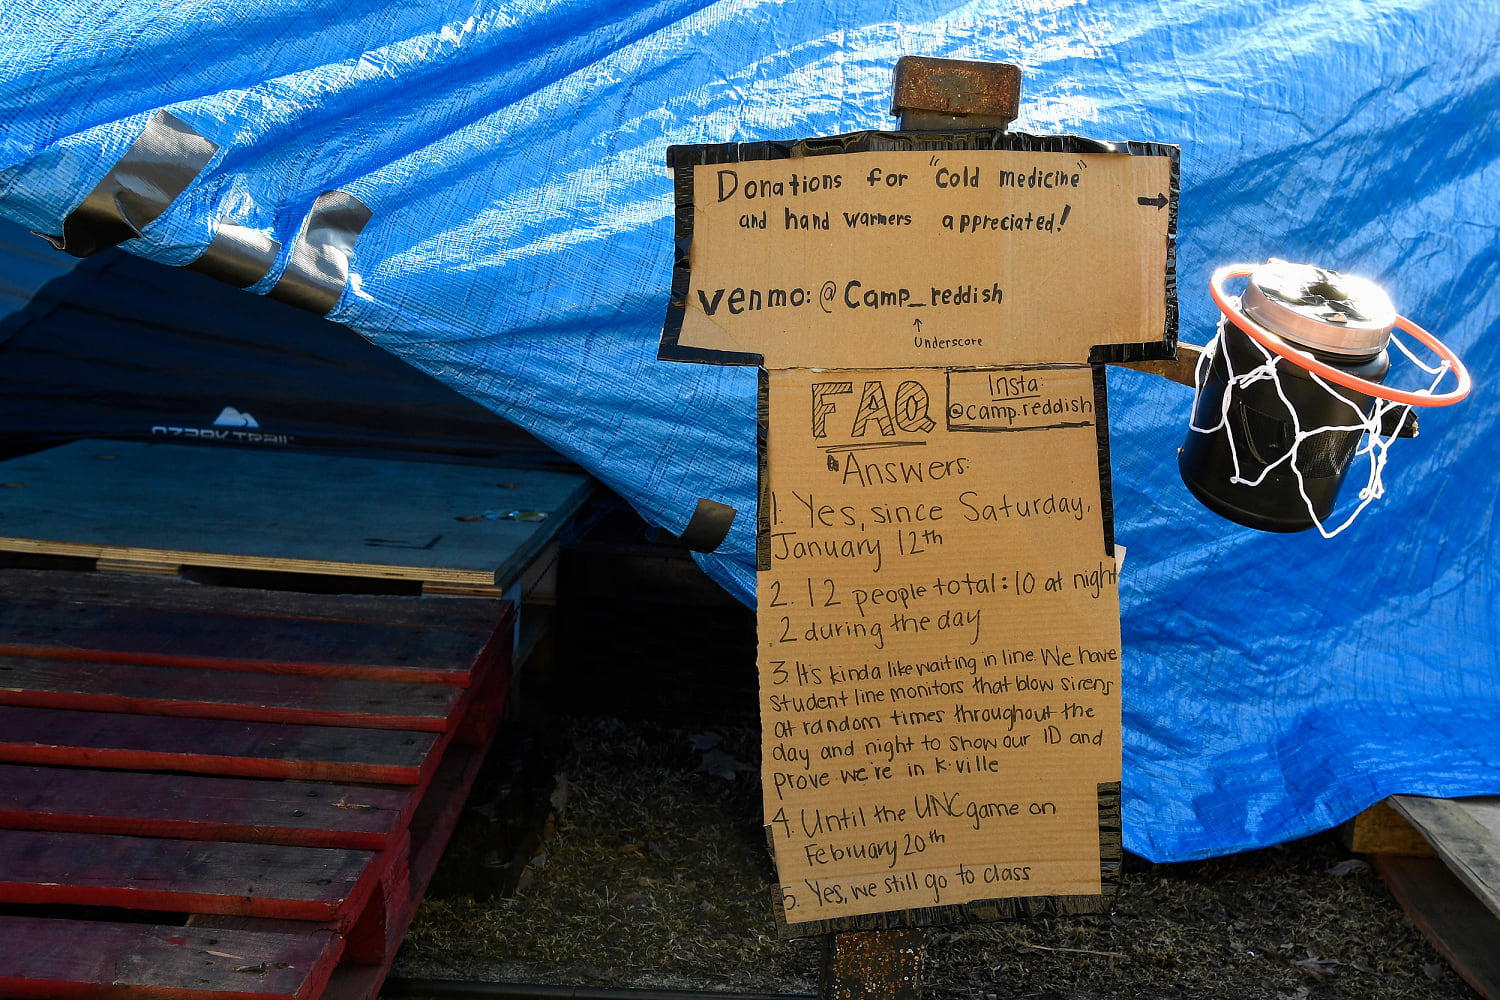 Donations for "Cold medicine"
and hand warmers appreciated!
venmo: @Camp_reddish
↑
Underscore
FAQ
Insta:
@camp.reddish
Answers:
1. Yes, since Saturday,
January 12th
2. 12 people total: 10 at night
2 during the day
3. It's kinda like waiting in line. We have
student line monitors that blow sirens
at random times throughout the
day and night to show our ID and
prove we're in k-ville
4. Until the UNC game on
February 20th
5. Yes, we still go to class
OZARK TRAIL